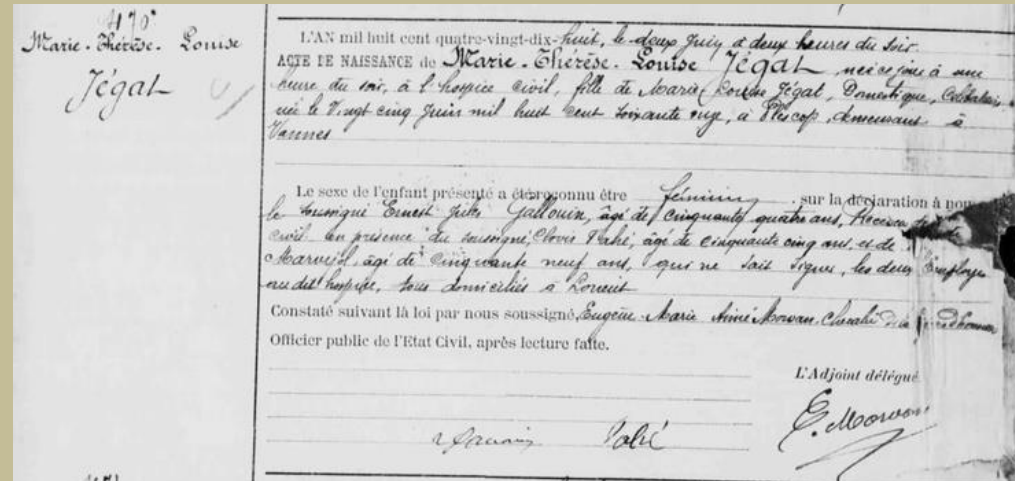 470
Marie-Thérèse-Louise
Jégat
L'AN mil huit cent quatre-vingt-dix-huit, le deux Juin à deux heures du soir
ACTE DE NAISSANCE de Marie-Thérèse-Louise Jégat, née ce jour à une
heure du soir, à l'hospice civil, fille de Marie Louise Jégat, Domestique, Célibataire
née le Vingt cinq Juin mil huit cent soixante onze, à Plescop, demeurant à
Vannes
Le sexe de l'enfant présenté a été reconnu être féminin, sur la déclaration à nous
le soussigné Ernest Jules Gallouin, âgé de cinquante quatre ans,
civil en présence du soussigné, Clovis Pahé, âgé de cinquante cinq ans, et de
Marvejol, âgé de cinquante neuf ans, qui ne sait signer, les deux Employés
au dit hospice, tous domiciliés à Lorient
Constaté suivant la loi par nous soussigné, Eugène-Marie Aimé Morvan, Chevalier de la
Officier public de l'Etat Civil, après lecture faite.
L'Adjoint délégué
E. Morvan
Pahé